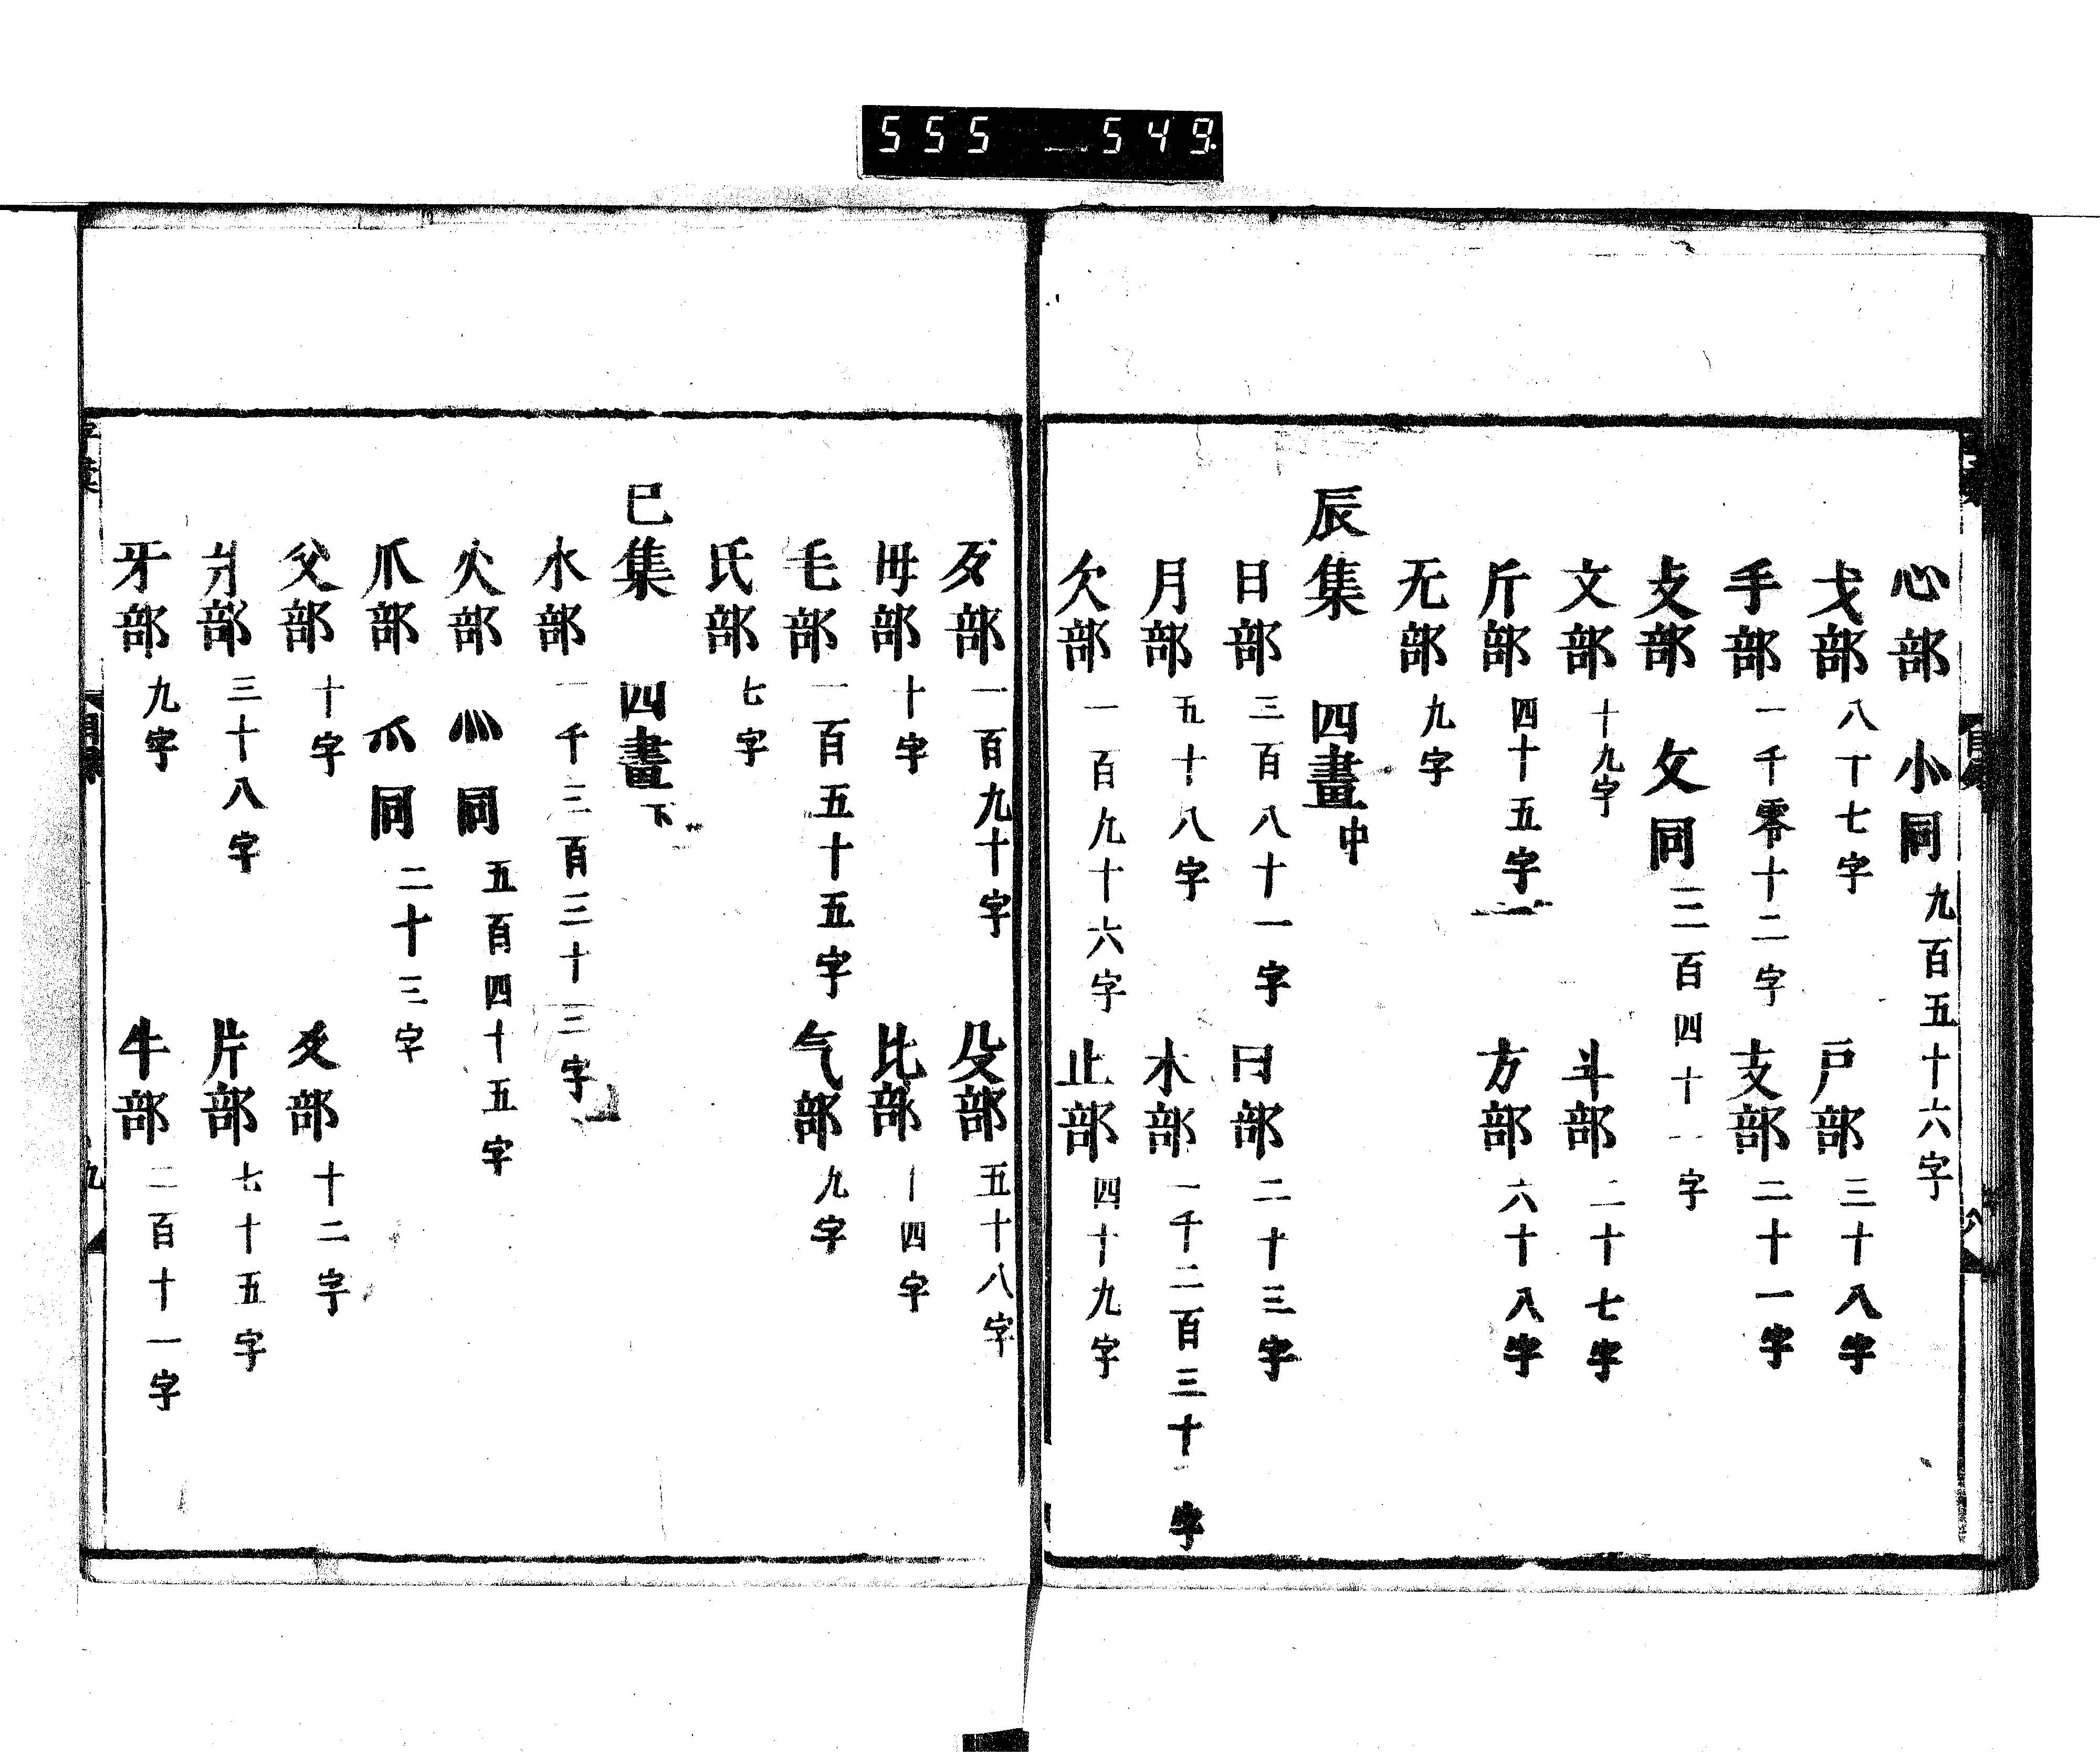 555 — 549
心部 小同 九百五十六字
戈部 八十七字 戸部 三十八字
手部 一千零十二字 支部 二十一字
攴部 攵同 三百四十一字
文部 十九字 斗部 二十七字
斤部 四十五字 方部 六十八字
无部 九字
辰集 四畫中
日部 三百八十一字 曰部 二十三字
月部 五十八字 木部 一千二百三十一字
欠部 一百九十六字 止部 四十九字
歹部 一百九十字 殳部 五十八字
毋部 十字 比部 十四字
毛部 一百五十五字 气部 九字
氏部 七字
巳集 四畫下
水部 一千三百三十三字
火部 灬同 五百四十五字
爪部 爫同 二十三字
父部 十字 爻部 十二字
爿部 三十八字 片部 七十五字
牙部 九字 牛部 二百十一字
字彙 目錄 九